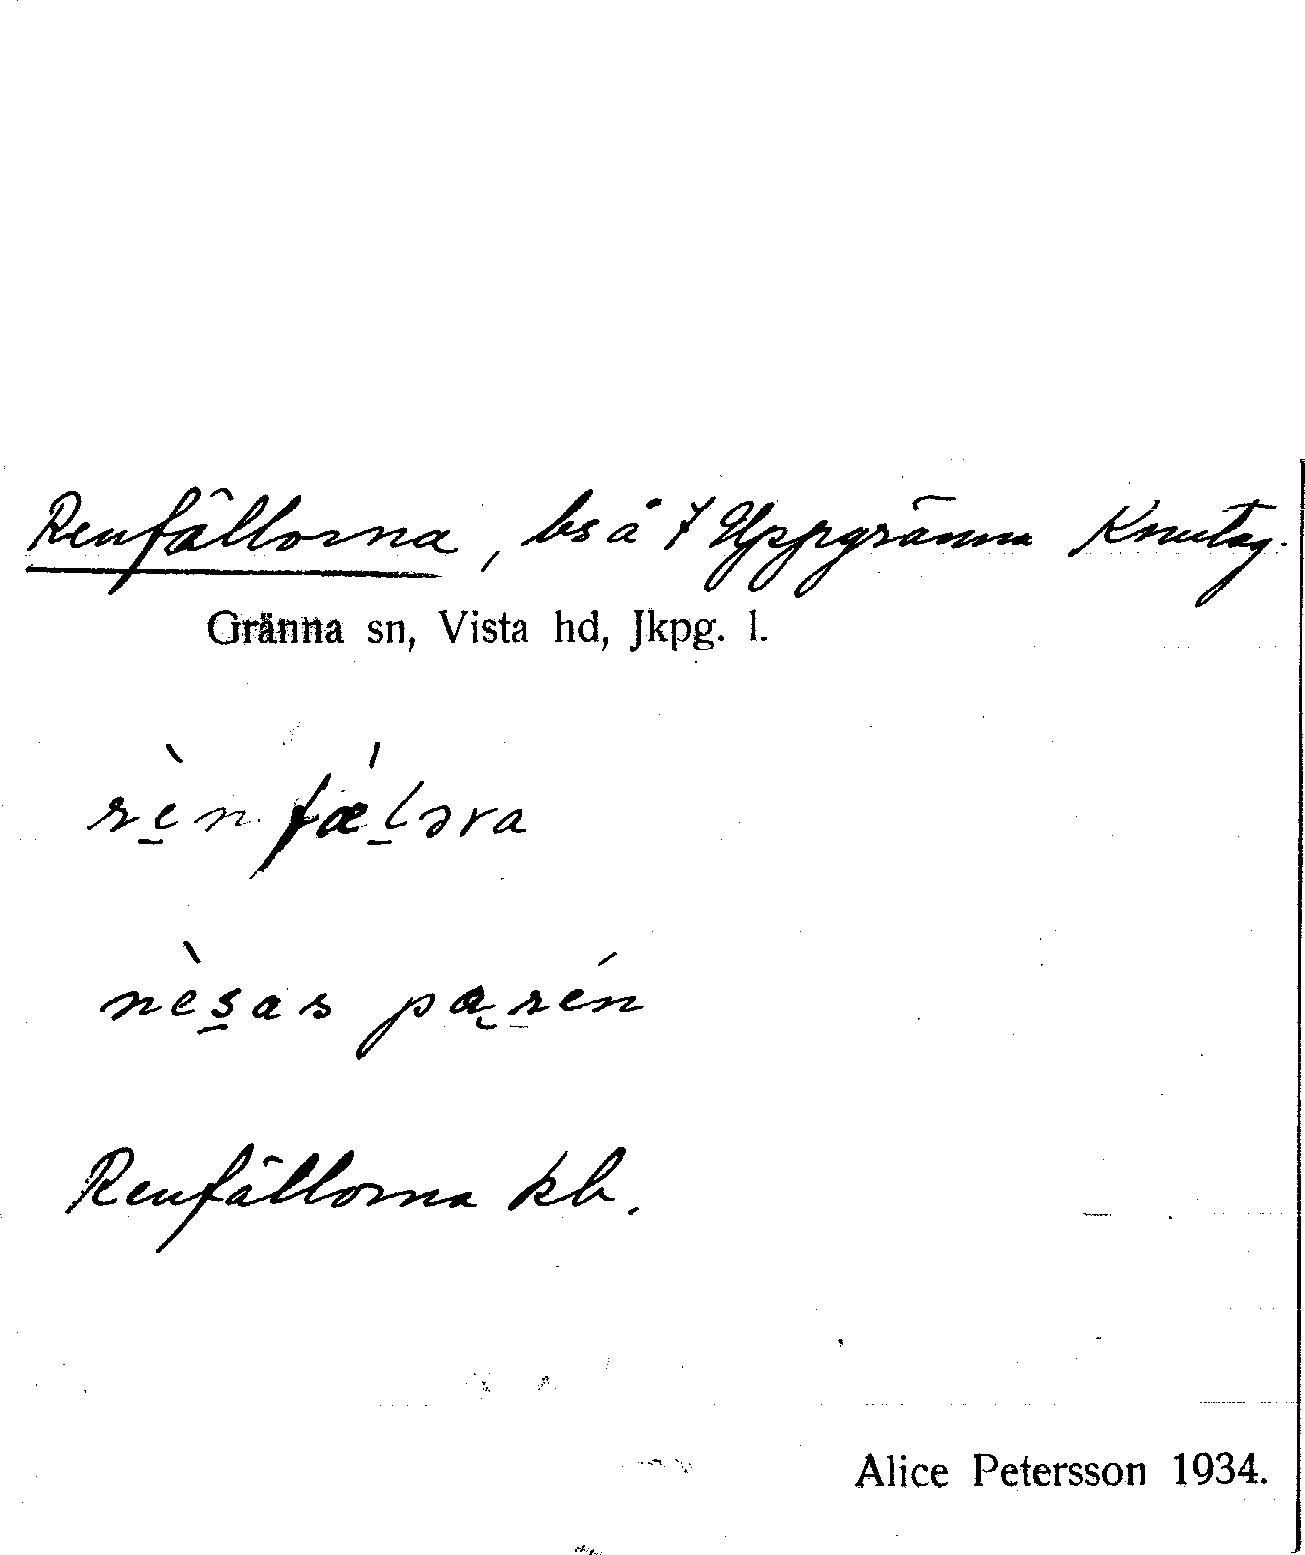 Renfällorna, bs å ⁊ Uppgränna Knutag.
Gränna sn, Vista hd, Jkpg. l.
rè̱n fǽḻəra
nès̱as pa̡ ṟén
Renfällorna kb.
Alice Petersson 1934.